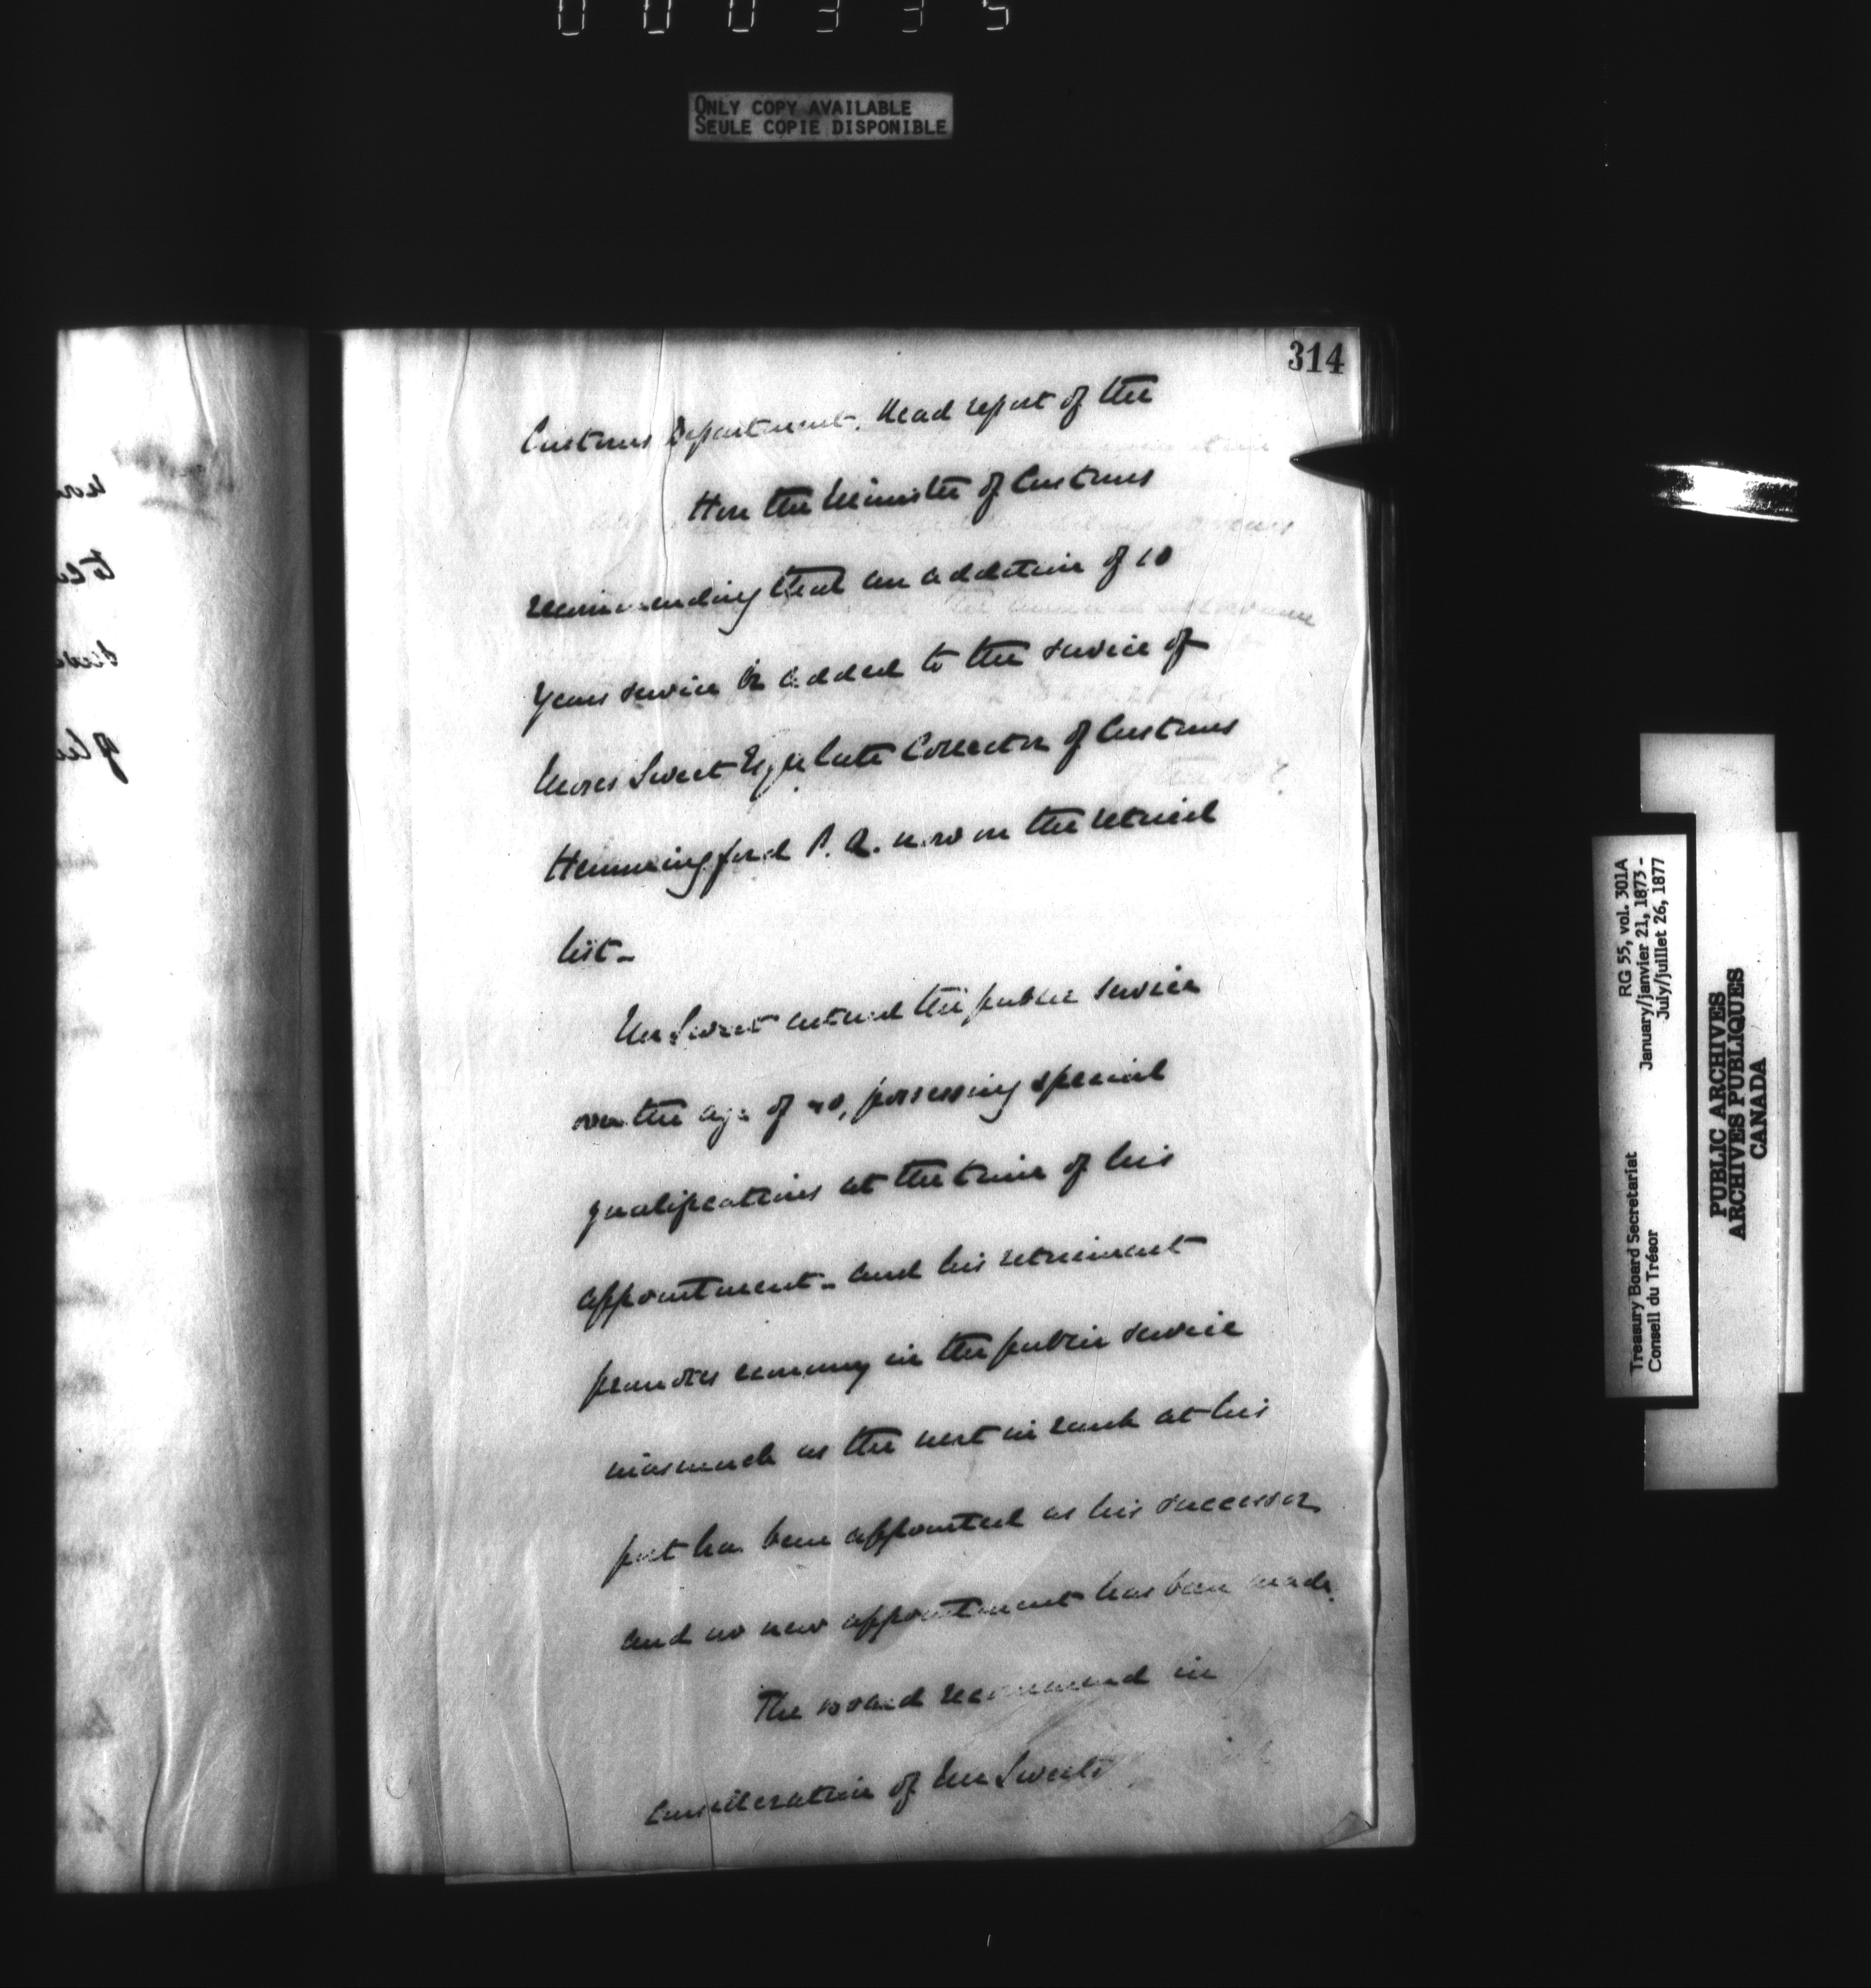 000335
ONLY COPY AVAILABLE
SEULE COPIE DISPONIBLE
314
Customs Department. Read report of the
Hon the Minister of Customs
recommending that an addition of 10
years service be added to the service of
Moses Sweet Esqre late Collector of Customs
Hemmingford P.Q. now on the retired
list_
Mr Sweet entered the public service
over the age of 40, possessing special
qualifications at the time of his
appointment_ and his retirement
promotes economy in the public service
inasmuch as the next in rank at his
port has been appointed as his successor
and no new appointment has been made.
The Board recommend in
consideration of Mr Sweets
Treasury Board Secretariat RG 55, vol. 301A
Conseil du Trésor January/janvier 21, 1873 -
July/juillet 26, 1877
PUBLIC ARCHIVES
ARCHIVES PUBLIQUES
CANADA